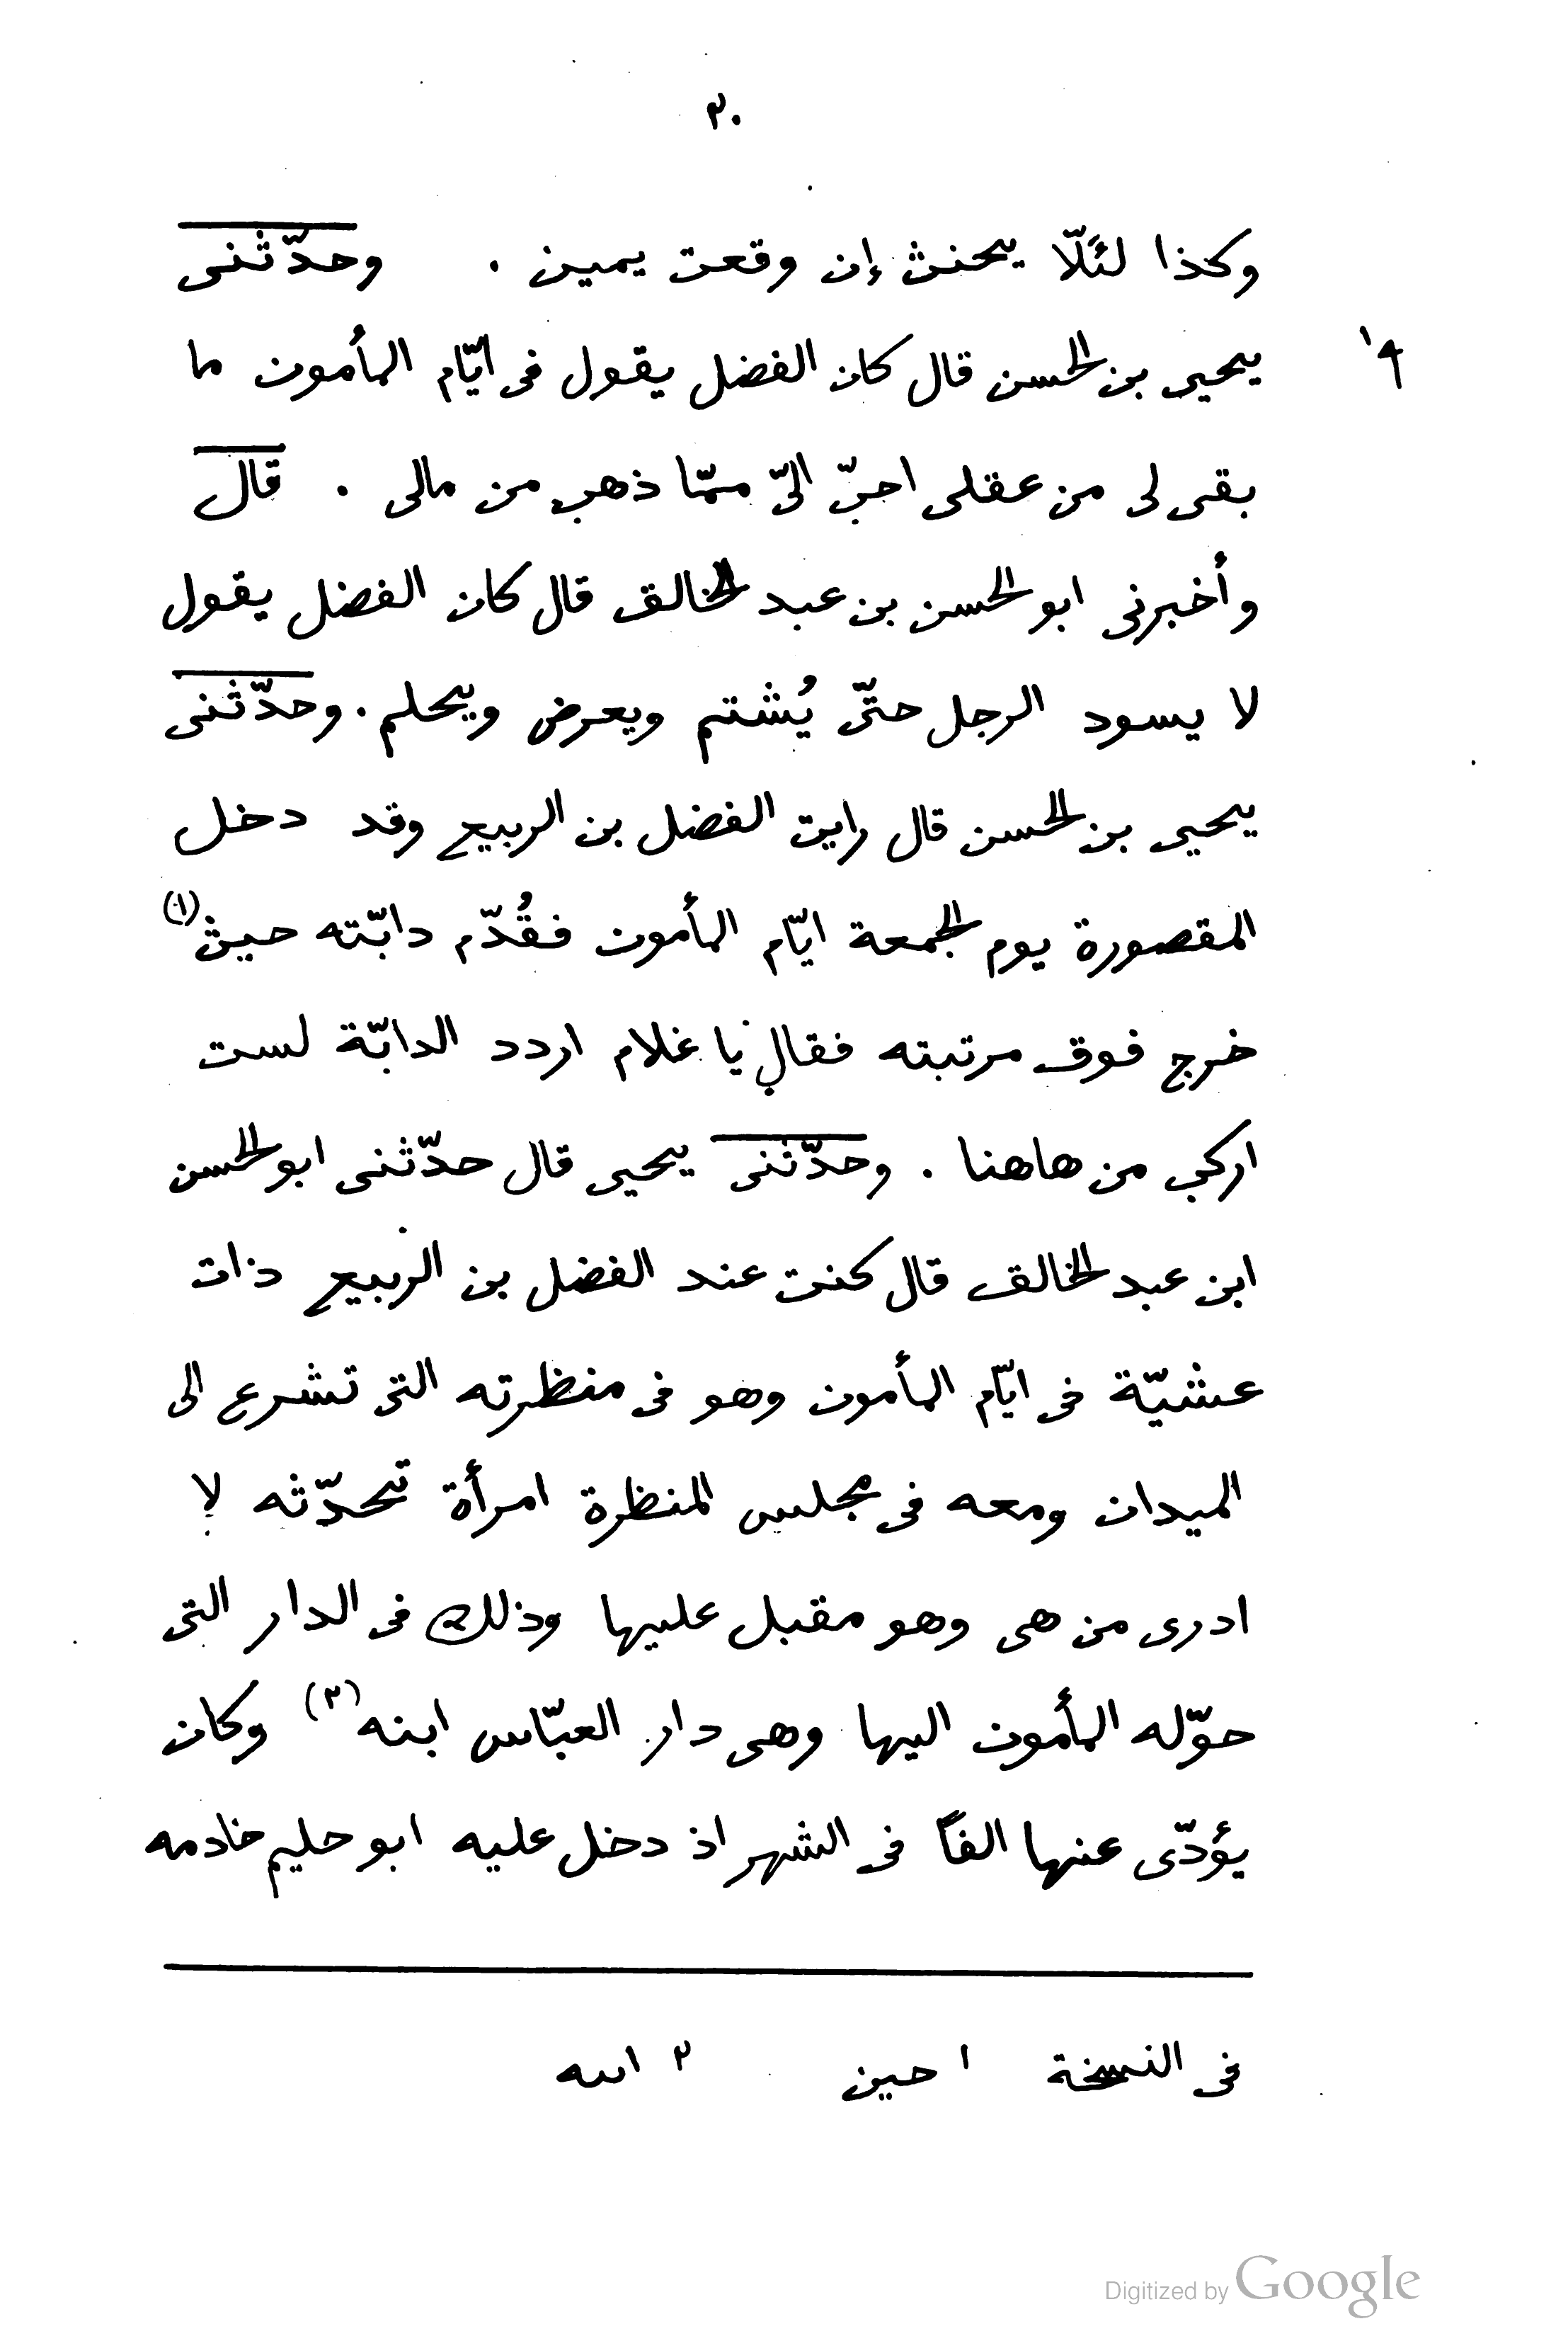 ٢٠
وكذا لئلّا يحنث إن وقعت يمين . وحدّثنى
يحيى بن الحسن قال كان الفضل يقول فى ايّام المأمون ما
٩ا
بقى لى من عقلى احبّ الىّ ممّا ذهب من مالى . قال
وأخبرنى ابو الحسن بن عبد الخالق قال كان الفضل يقول
لا يسود الرجل حتّى يُشتم ويعرض ويحلم . وحدّثنى
يحيى بن الحسن قال رايت الفضل بن الربيع وقد دخل
المقصورة يوم الجمعة ايّام المأمون فقُدّم دابّته حيث (١)
خرج فوق مرتبته فقال يا غلام اردد الدابّة لست
اركب من هاهنا . وحدّثنى يحيى قال حدّثنى ابو الحسن
ابن عبد الخالق قال كنت عند الفضل بن الربيع ذات
عشيّة فى ايّام المأمون وهو فى منظرته التى تشرع الى
الميدان ومعه فى مجلس المنظرة امرأة تحدّثه لا
ادرى من هى وهو مقبل عليها وذلك فى الدار التى
حوّله المأمون اليها وهى دار العبّاس ابنه (٢) وكان
يؤدّى عنها الفاً فى الشهر اذ دخل عليه ابو حليم خادمه
فى النسخة ١ حين ٢ الله
Digitized by Google